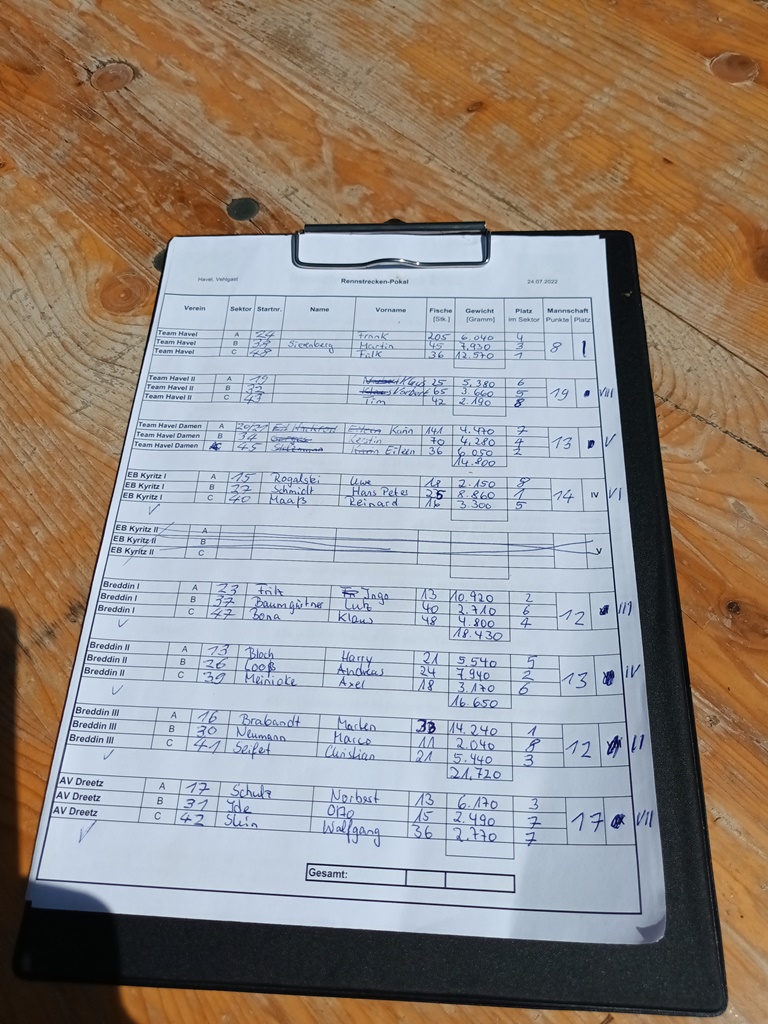 Havel, Vehlgast Rennstrecken-Pokal 24.07.2022
Verein Sektor Startnr. Name Vorname Fische [Stk.] Gewicht [Gramm] Platz im Sektor Mannschaft Punkte Platz
Team Havel A 24 Frank 205 6.040 4
Team Havel B 38 Sierenberg Martin 45 7.930 3 8 1
Team Havel C 48 Falk 36 12.570 1
Team Havel II A 19 Klaus 25 5.380 6
Team Havel II B 32 Norbert 65 3.660 5 19 VIII
Team Havel II C 43 Tim 42 2.190 8
Team Havel Damen A Karin 141 4.470 7
Team Havel Damen B 34 Kerstin 70 4.280 4 13 V
Team Havel Damen 45 Eileen 36 6.050 2
14.800
EB Kyritz I A 15 Rogalski Uwe 18 2.150 8
EB Kyritz I B 22 Schmidt Hans Peter 25 8.860 1 14 IV VI
EB Kyritz I C 40 Maaß Reinard 16 3.300 5
EB Kyritz II A
EB Kyritz II B
EB Kyritz II C V
Breddin I A 23 Fritz Ingo 13 10.920 2
Breddin I B 37 Baumgärtner Lutz 40 2.710 6 12 III
Breddin I C 47 Bona Klaus 48 4.800 4
18.430
Breddin II A 13 Bloch Harry 21 5.540 5
Breddin II B 26 Looß Andreas 24 7.940 2 13 IV
Breddin II C 39 Meinicke Axel 18 3.170 6
16.650
Breddin III A 16 Brabandt Marlen 33 14.240 1
Breddin III B 30 Neumann Marco 11 2.040 8 12 II
Breddin III C 41 Seifet Christian 21 5.440 3
21.720
AV Dreetz A 17 Schulz Norbert 13 6.170 3
AV Dreetz B 31 Ide Otto 15 2.490 7 17 VII
AV Dreetz C 42 Stein Wolfgang 36 2.770 7
Gesamt: